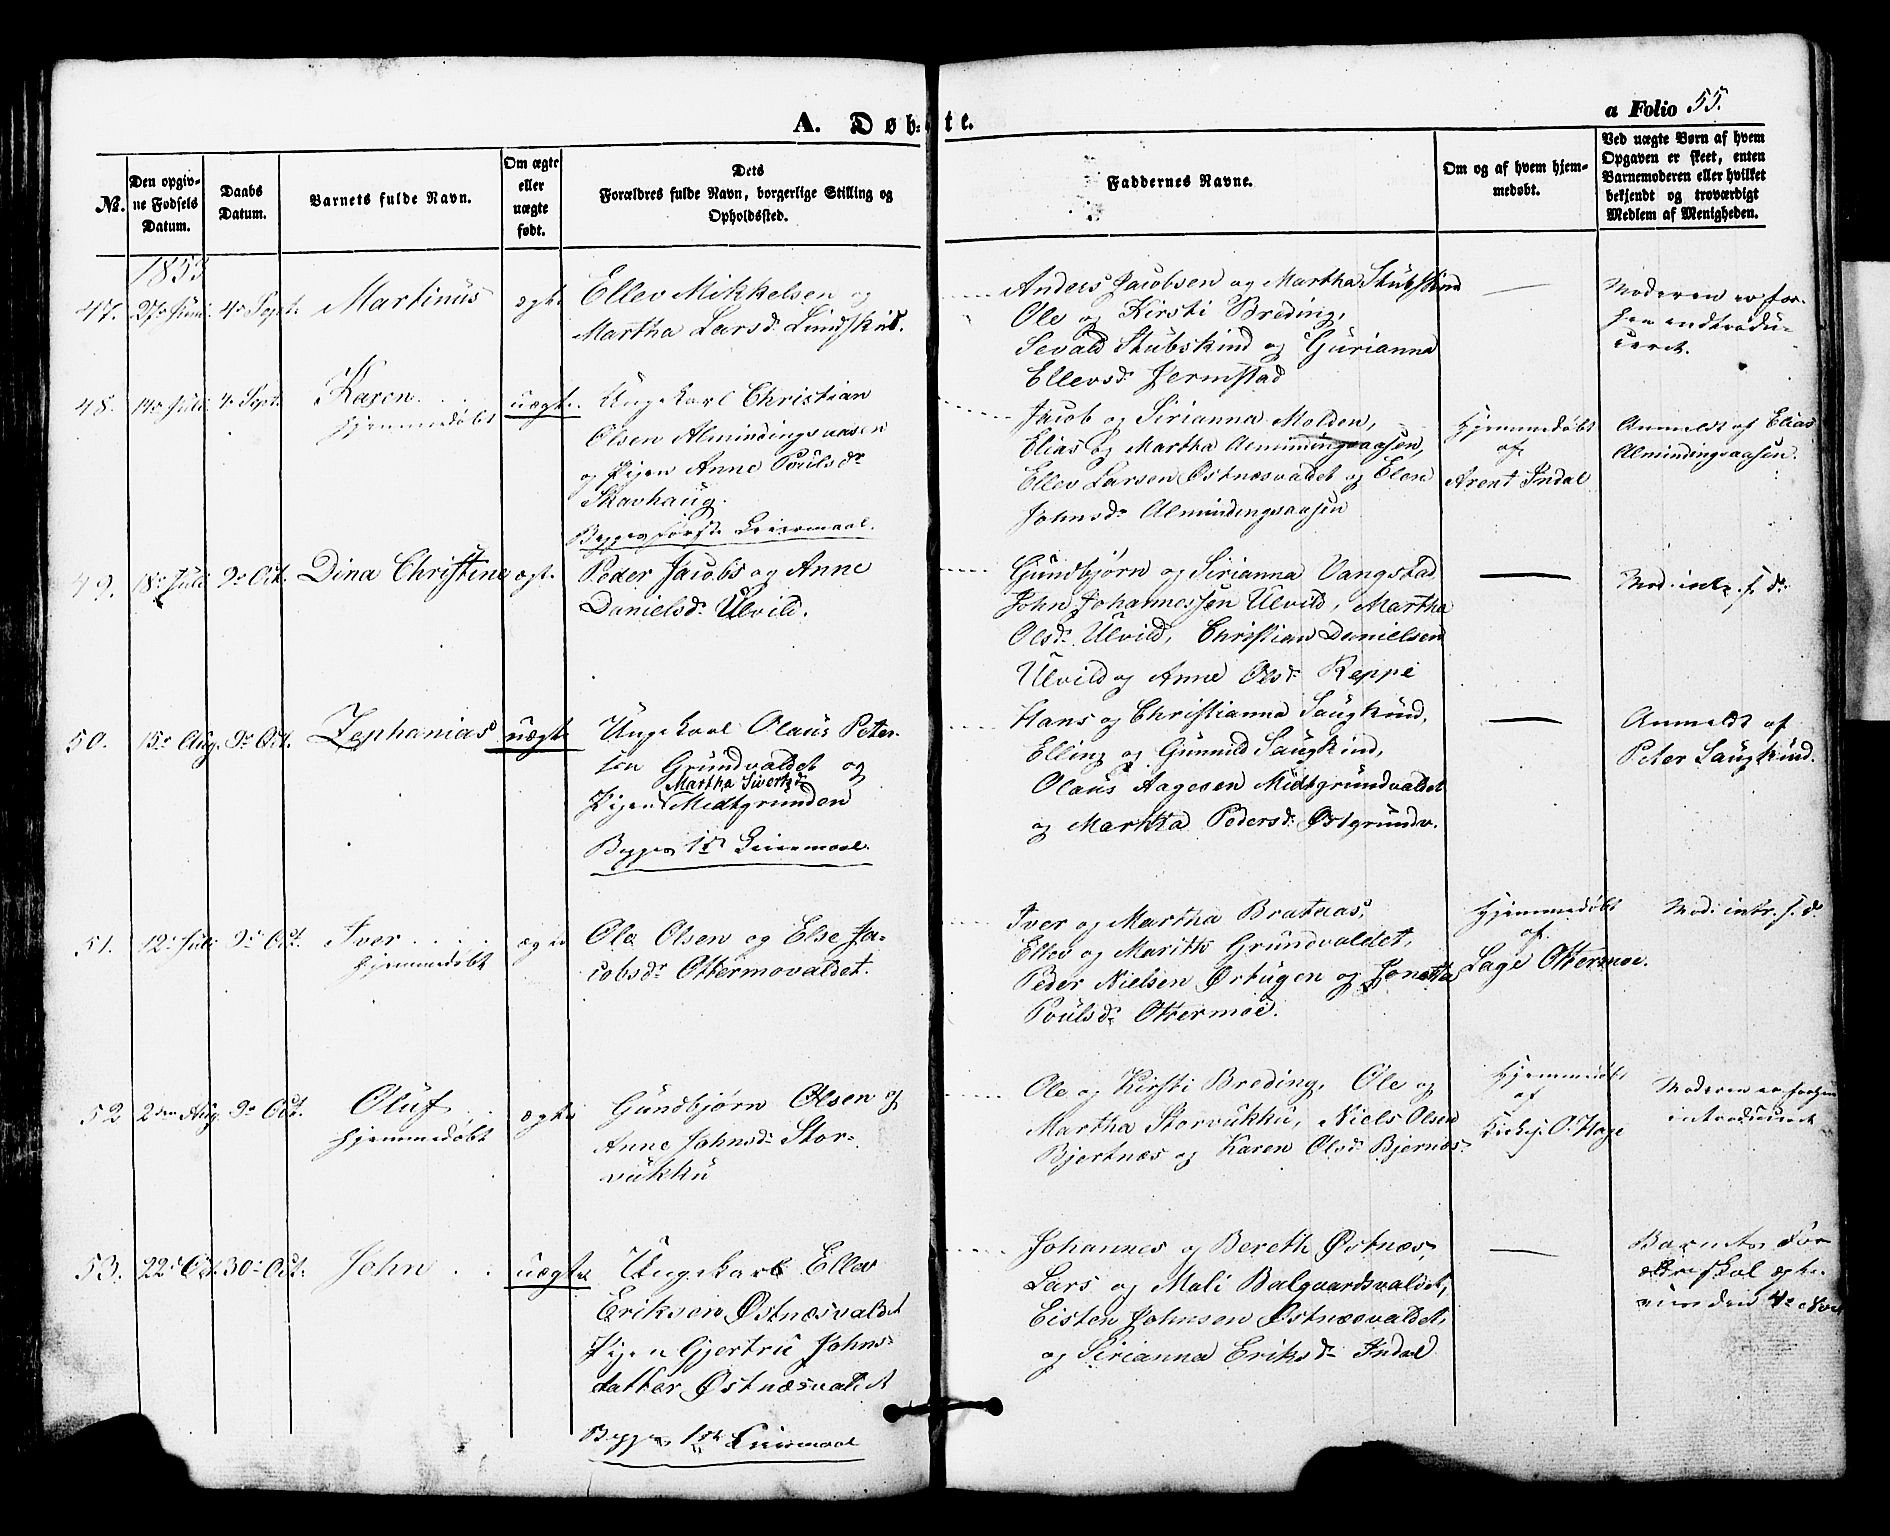 A. Døbte.
a Folio 55.
No.
Den opgivne Fødsels Datum.
Daabs Datum.
Barnets fulde Navn.
Om ægte eller uægte født.
Dets Forældres fulde Navn, borgerlige Stilling og Opholdssted.
Faddernes Navne.
Om og af hvem hjemmedøbt.
Ved uægte Børn af hvem Opgaven er skeet, enten Barnemoderen eller hvilket bekjendt og troværdigt Medlem af Menigheden.
1853
47. 4de Sept. Martinus ægte
Ellev Mikkelsen og
Martha Larsd.
Anders Jacobsen og Martha Stubskind
Ole og Kirsti Breding,
Sevald Stubskind og Gurianna
Ellevsd. Jermstad
—
Moderen er for-
48. 14de Juli 4de Sept. Karen
Hjemmedøbt
uægte
Ungekarl Christian
Olsen Almindingsaasen
og Pigen Anne Poulsdr
Skavhaug.
Begges første Leiermaal.
Jacob og Sirianna Molden,
Elias og Martha Almindingsaasen,
Ellev Larsen Østnæsvaldet og Elen
Johnsdr Almindingsaasen
Hjemmedøbt
af
Arent Indal
Anmeldt af Elias
Almindingsaasen.
49. 18de Juli 9de Oct. Dina Christine ægte
Peder Jacobs og Anne
Danielsdr Ulvild.
Gundbjørn og Sirianna Vangstad
John Johannessen Ulvild, Martha
Olsdr Ulvild, Christian Danielsen
Ulvild og Anne Olsdr Reppe
—
Mod: intr. f. d:
50. 15de Aug. 9de Oct. Zephanias uægte
Ungekarl Olaus Peter-
sen Grundvaldet og
Martha Sivertsdr
Pigen Midtgrunden
Begges 1ste Leiermaal.
Hans og Christianna Saugkind,
Elling og Gunnild Saugkind,
Olaus Aagesen Midtgrundvaldet
og Martha Pedersdr Østgrundv.
—
Anmeldt af
Peter Saugkind.
51. 12te Juli 9de Oct. Iver
Hjemmedøbt
ægte
Ole Olsen og Else Ja-
cobsdr Ottermovaldet.
Iver og Martha Bratnas,
Ellev og Marith Grundvaldet,
Peder Nielsen Ørtugen og Jonetta
Poulsdr Ottermoe.
Hjemmedøbt
af
Lage Ottermoe.
Mod: intr. f. d.
52 2den Aug. 9de Oct. Oluf
Hjemmedøbt
ægte
Gundbjørn Olsen og
Anne Johnsdr Stor-
vukku
Ole og Kirsti Breding, Ole og
Martha Storvukku, Niels Olsen
Bjertnæs og Karen Olsdr Bjernæs.
Hjemmedøbt
af
Kirkesj. O. Hage
Moderen er forhen
introduceret
53. 22de Oct. 30te Oct. John uægte
Ungekarl Ellev
Eriksen Østnæsvaldet
Pigen Gjertru Johns-
datter Østnæsvaldet
Begges 1ste Leiermaal
Johannes og Bereth Østnæs,
Lars og Mali Balgaardsvaldet,
Eisten Johnsen Østnæsvaldet,
og Sirianna Eriksdr Indal
—
Barnets For-
ældre skal ægte-
vies den 4de Nov